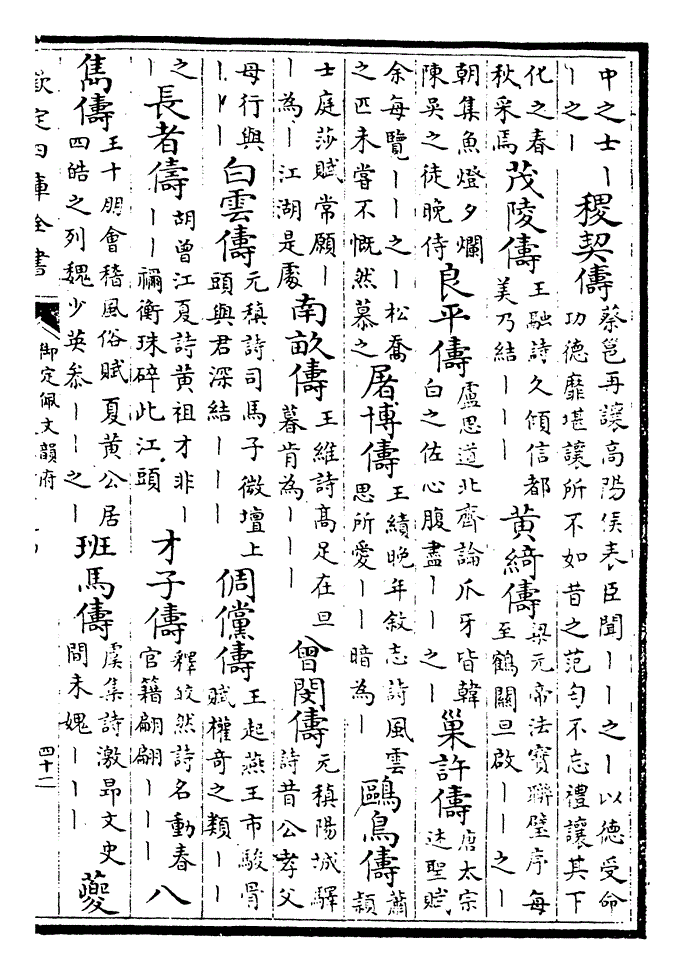 中之士丨
丨之丨
稷契儔
蔡邕再讓高陽侯表臣聞丨丨之丨以德受命
功德靡堪讓所不如昔之范匄不忘禮讓其下
化之春
秋采焉
茂陵儔
王融詩久傾信都
美乃結丨丨丨
黄綺儔
梁元帝法寶聯璧序每
至鶴關旦啟丨丨之丨
朝集魚燈夕爛
陳吳之徒晚侍
良平儔
盧思道北齊論爪牙皆韓
白之佐心腹盡丨丨之丨
巢許儔
唐太宗
述聖賦
余每覽丨丨之丨松喬
之匹未嘗不慨然慕之
屠博儔
王績晚年敘志詩風雲
思所愛丨丨暗為丨
鷗鳥儔
蕭
穎
士庭莎賦常願丨
丨為丨江湖是處
南畝儔
王維詩高足在旦
暮肯為丨丨丨
曾閔儔
元稹陽城驛
詩昔公孝父
母行與
丨丨丨
白雲儔
元稹詩司馬子微壇上
頭與君深結丨丨丨
倜儻儔
王起燕王市駿骨
賦權奇之類丨丨
之
丨
長者儔
胡曾江夏詩黄祖才非丨
丨丨禰衡珠碎此江頭
才子儔
釋皎然詩名動春
官籍翩翩丨丨丨
八
雋儔
王十朋會稽風俗賦夏黄公居
四皓之列魏少英叅丨丨之丨
班馬儔
虞集詩激昂文史
間未媿丨丨丨
夔
欽定四庫全書
御定佩文韻府
四十二